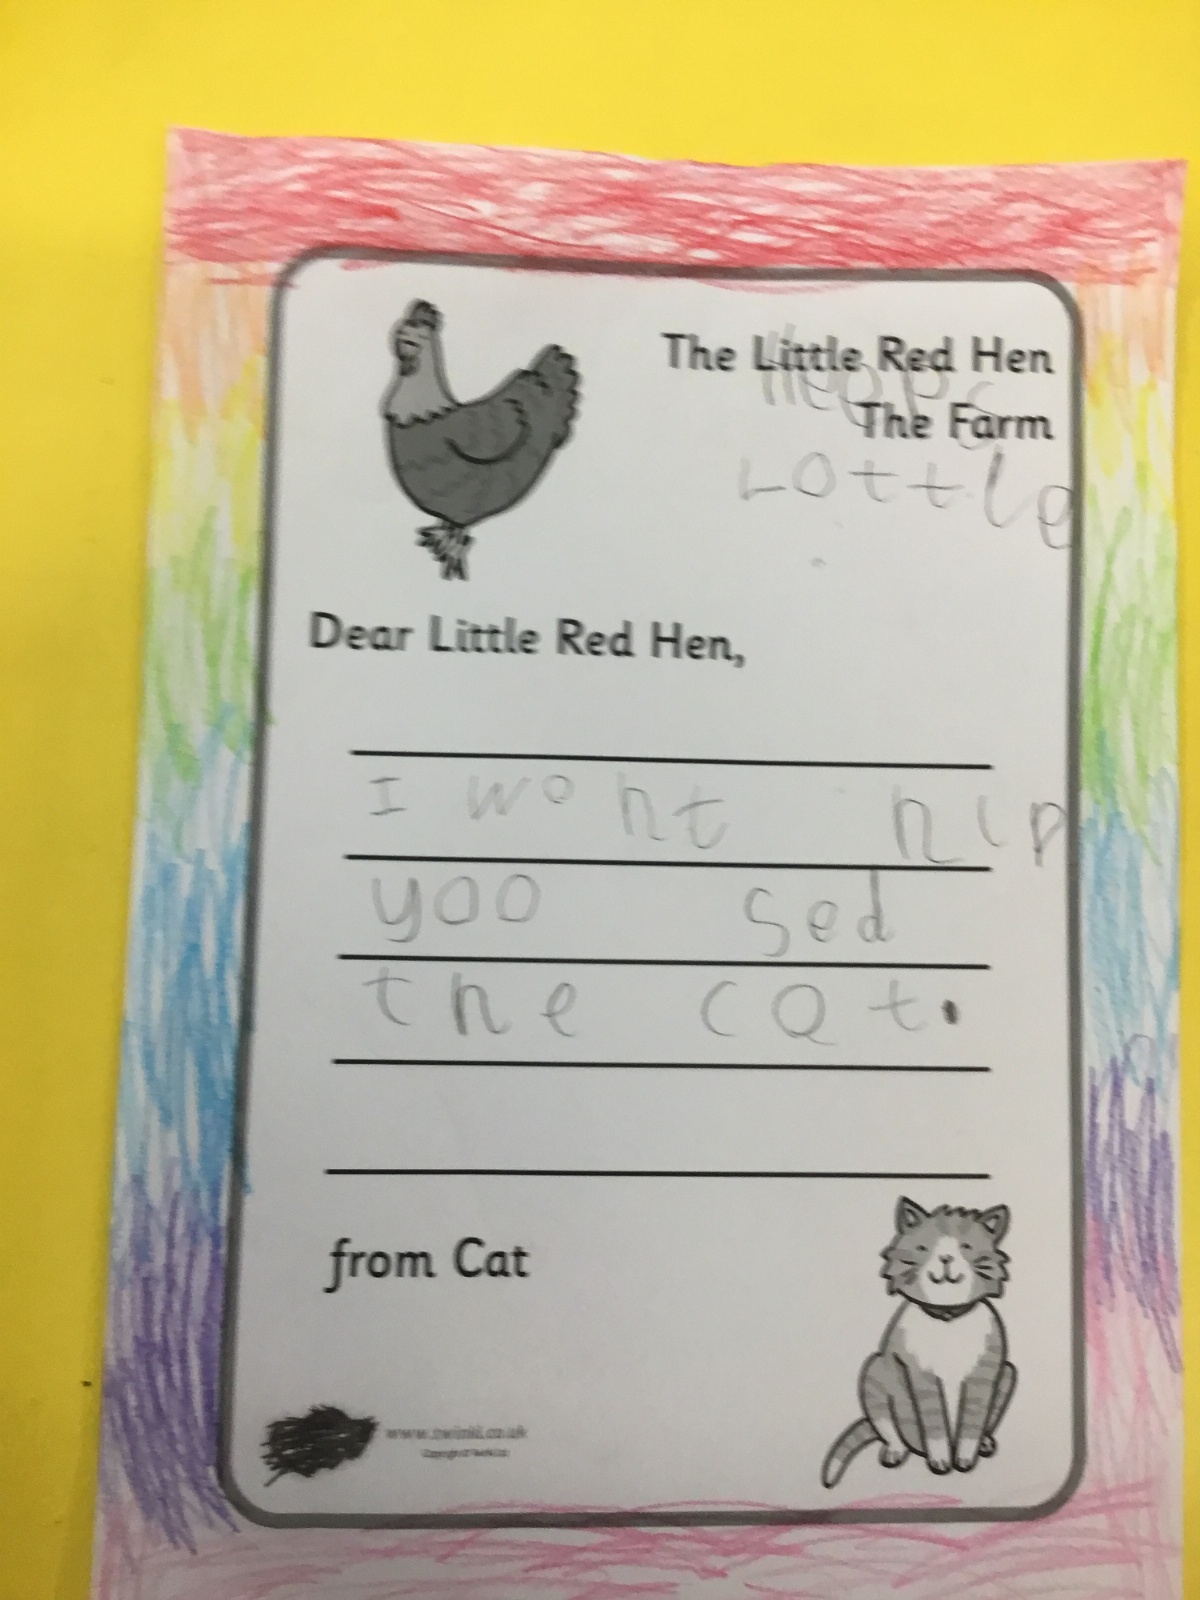 The Little Red Hen
The Farm
Lottle
Dear Little Red Hen,
I wont hlp
yoo sed
the cat.
from Cat
www.twinkl.co.uk